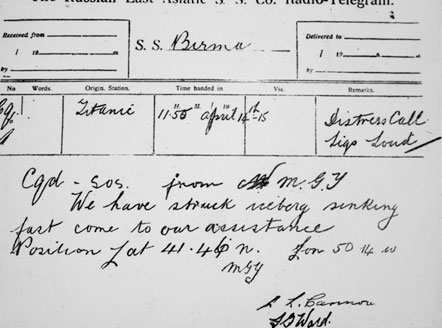 The Russian East Asiatic S. S. Co. Radio-Telegram.
Received from
Delivered to
S. S. Birma
1 19 m
1 19 m
by
by
No Words. Origin. Station. Time handed in Via. Remarks.
H. M. 19
Titanic 11.50 April 14th-15 Distress Call
Sigs Loud
Cqd - SOS. from M.G.Y
We have struck iceberg sinking
fast come to our assistance
Position Lat 41.46 n. Lon 50 14 w
MGY
Cannon
Ward.